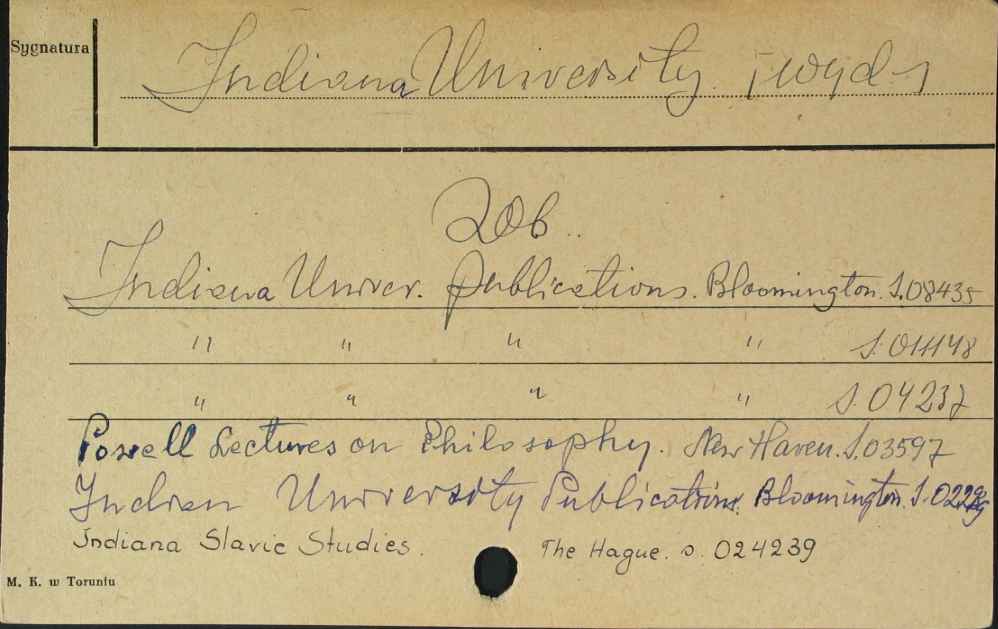 Sygnatura
Indiana University [wyd]
Zob.
Indiana Univer. Publications. Bloomington. S.08435
" " " " S.
" " " " S.04237
Powell Lectures on Philosophy. New Haven. S.03597
Indian University Publications. Bloomington. S.
Indiana Slavic Studies. The Hague. s. 024239
M. K. w Toruniu